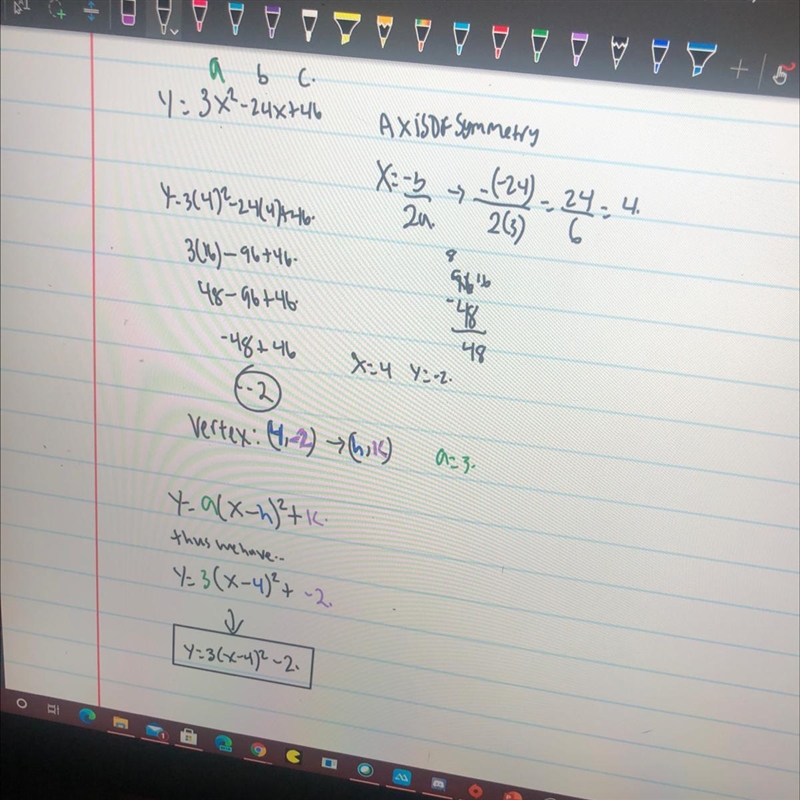 a b c.
Y = 3x²-24x+46
Axis Of Symmetry
X = -b/2a. → -(-24)/2(3) = 24/6 = 4.
Y=3(4)²-24(4)+46.
3(16)-96+46.
48-96+46.
-48+46
-2
8
96 16
-48
48
X=4 Y=-2.
Vertex: (4,-2) → (h,k)
a=3.
Y=a(x-h)²+k.
thus we have..
Y=3(x-4)²+ -2.
↓
Y=3(x-4)²-2.